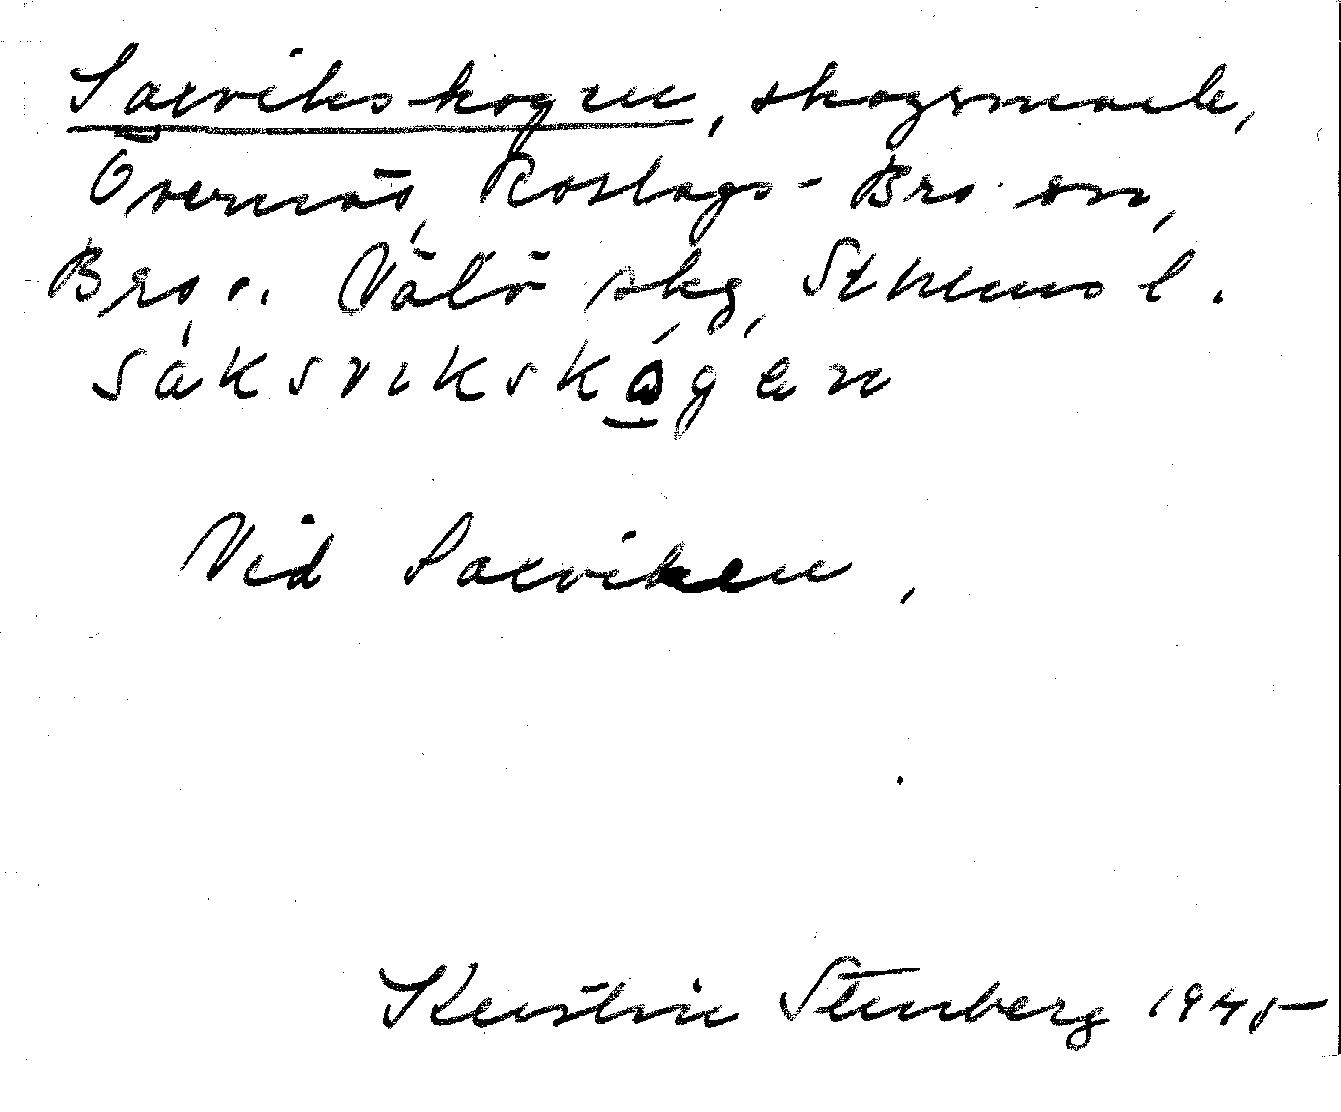 Saxvikskogen, skogsmark,
Övernäs, Roslags-Bro sn,
Bro o. Vätö skg, Sthlms l.
sàksvikskó̱gen
Vid Saxviken.
Kerstin Stenberg 1945